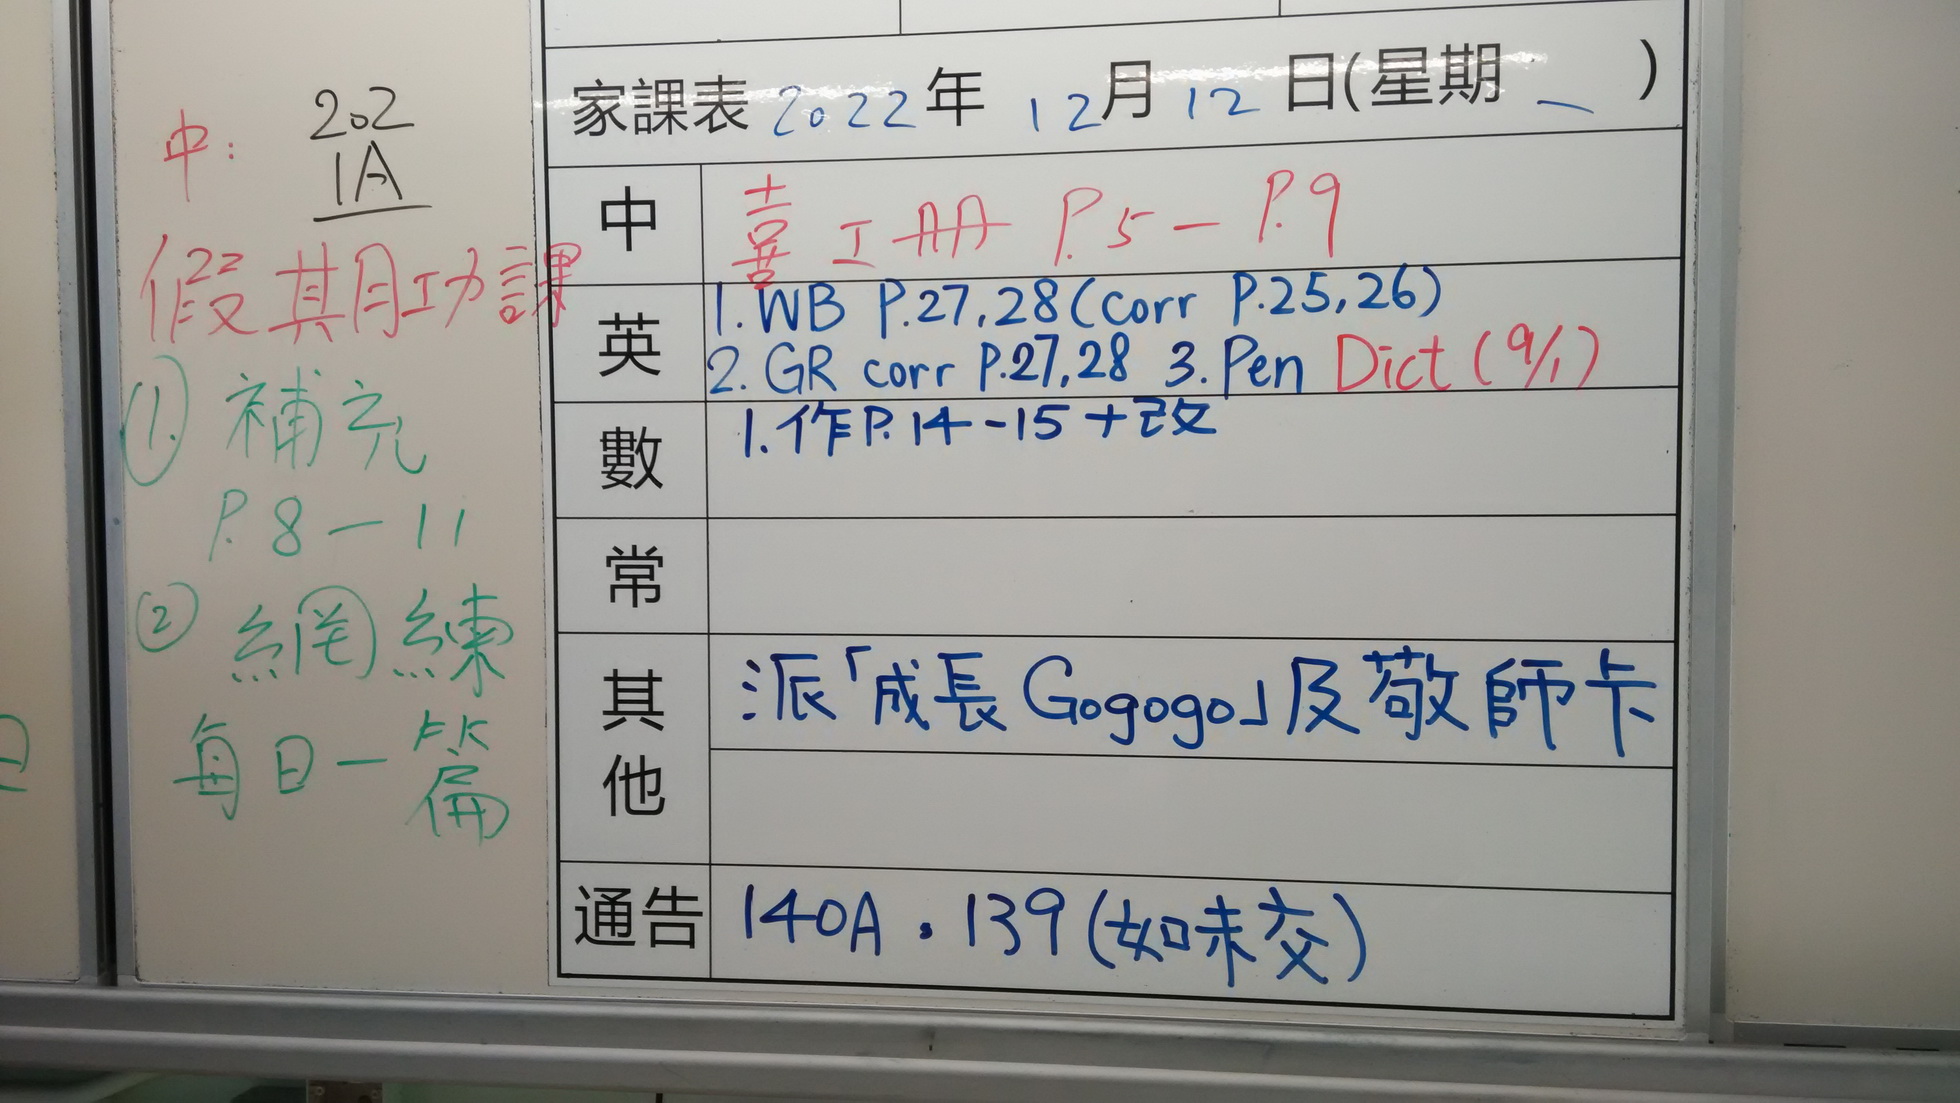 中:
202
1A
假期功課
①補充
P.8－11
②網練
每日一篇
家課表 2022年 12月 12日(星期 一 )
中 喜 工冊 P.5－P.9
英 1. WB P.27,28(corr P.25,26)
2. GR corr P.27,28 3. Pen Dict (9/1)
數 1.作P.14-15+改
常
其他 派「成長Gogogo」及敬師卡
通告 140A．139(如未交)